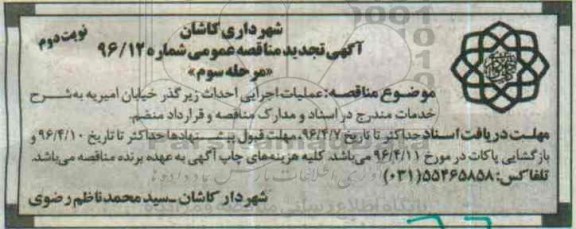 شهرداری کاشان
نوبت دوم
آگهی تجدید مناقصه عمومی شماره ۹۶/۱۲
«مرحله سوم»
موضوع مناقصه: عملیات اجرایی احداث زیرگذر خیابان امیریه به شرح
خدمات مندرج در اسناد و مدارک مناقصه و قرارداد منضم.
مهلت دریافت اسناد حداکثر تا تاریخ ۹۶/۴/۷، مهلت قبول پیشنهادها حداکثر تا تاریخ ۹۶/۴/۱۰ و
بازگشایی پاکات در مورخ ۹۶/۴/۱۱ می‌باشد. کلیه هزینه‌های چاپ آگهی به عهده برنده مناقصه می‌باشد.
تلفاکس: ۵۵۴۶۵۸۵۸ (۰۳۱)
شهردار کاشان ـ سید محمد ناظم رضوی